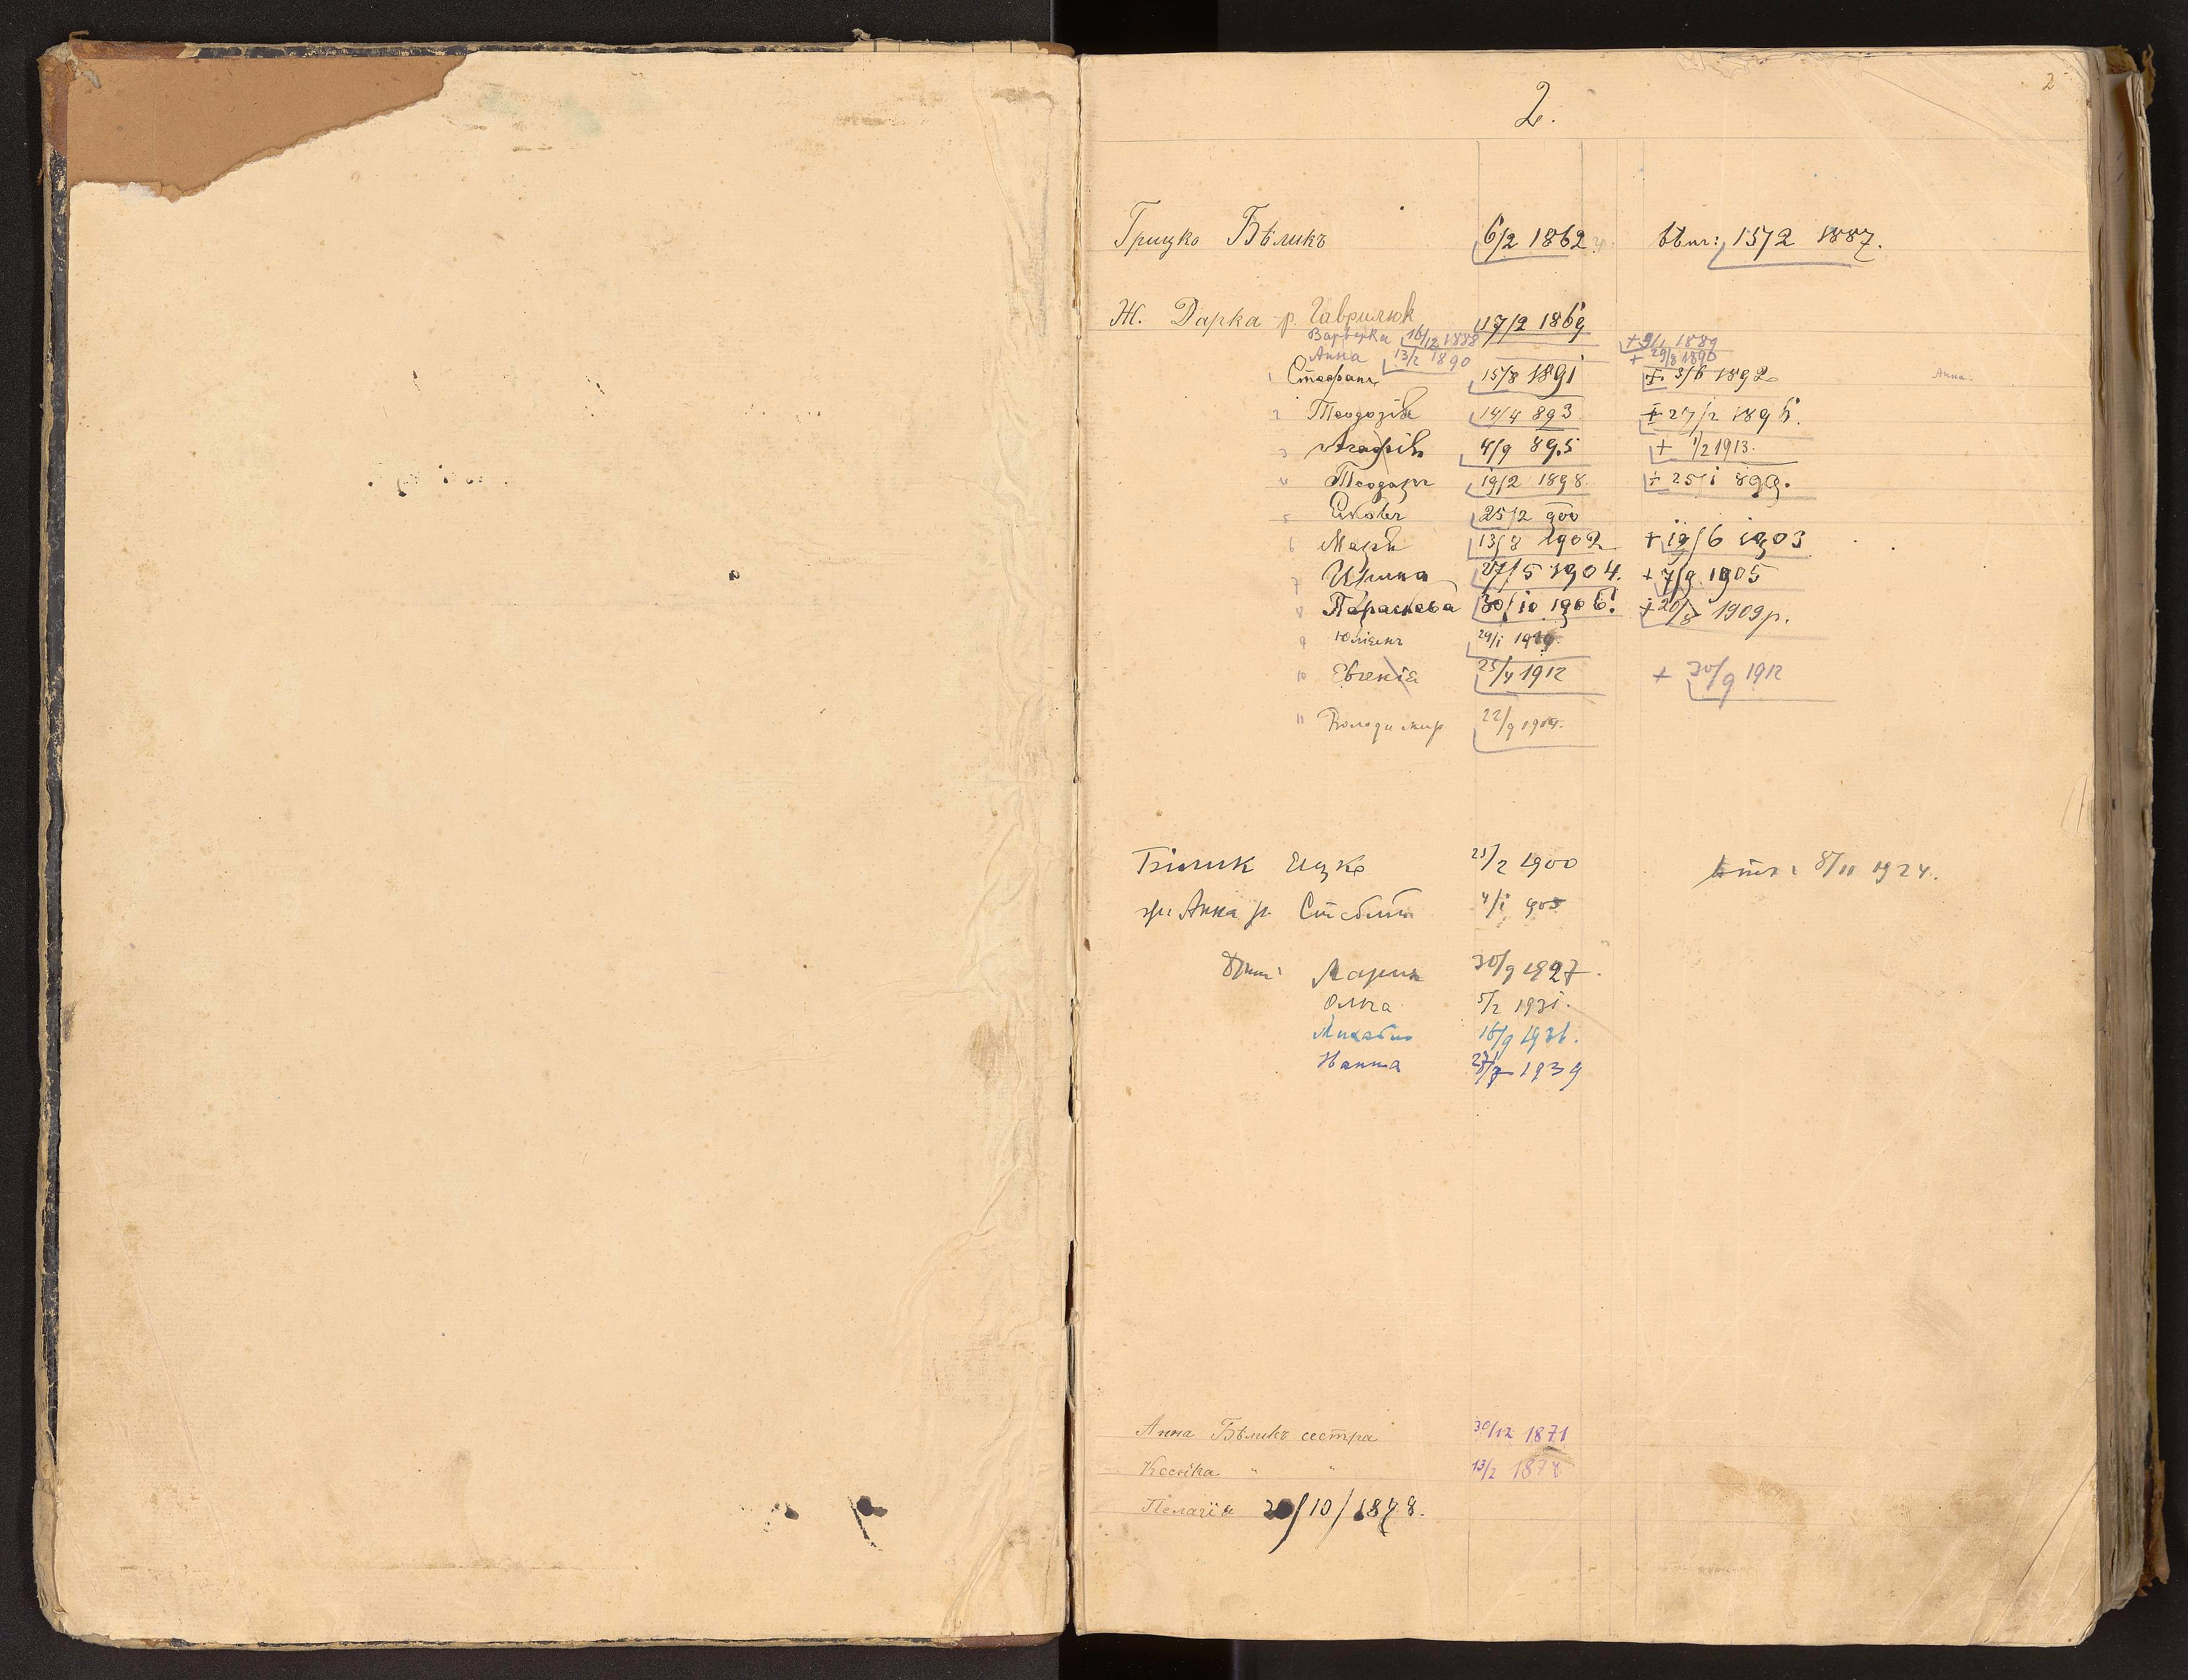 2
2.
Грицко Бѣликъ 6/2 1862 вѣнч: 15/2 1887.
Ж. Дарка р. Гаврилюк 17/2 1869
Варварка 16/12 1888 + 9/1 1889
Анна 13/2 1890 + 29/8 1890
1 Стефанъ 15/8 1891 + 3/6 1892 Анна.
2 Теодозія 14/4 893 + 27/2 1895.
3 Агафія 4/9 895 + 1/2 1913.
4 Теодоръ 19/2 1898. + 25/1 899.
5 Яковъ 25/2 900
6 Марія 13/8 1902 + 19/6 1903
7 Ирина 27/5 1904. + 7/9 1905
8 Параскева 30/10 1906! + 20/8 1909 р.
9 Юліянъ 29/1
10 Евгенія 25/4 1912 + 30/9 1912
11 Володимир 22/9
Білик Яцко 25/2 1900 8/11 1924.
Анна р. 4/1 905
Діти: Мария 30/9 1927.
Ольга 5/2 1931.
Михайло 16/9
Нанна 1939
Анна Бѣликъ сестра 30/12 1871
Ксенка " " 13/2
Пелагія /10/1878.